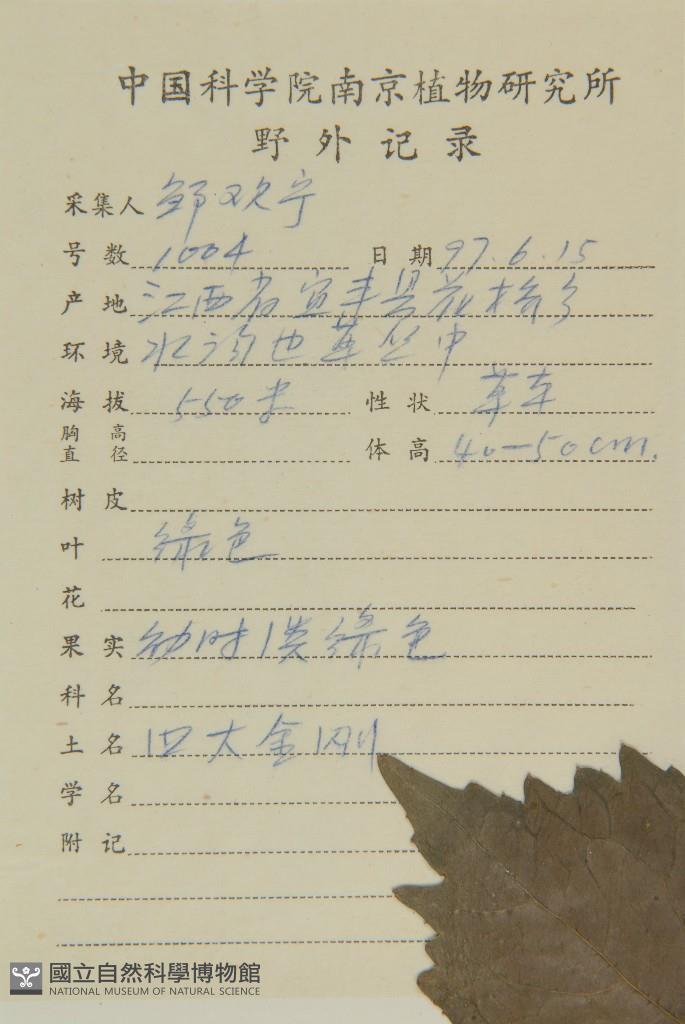 中国科学院南京植物研究所
野外记录
采集人 邹欢宁
号数 1004 日期 97.6.15
产地 江西省宜丰县花桥乡
环境 水沟边草丛中
海拔 550米 性状 草本
胸高直径 体高 40-50cm.
树皮
叶 绿色
花
果实 幼时淡绿色
科名
土名 四大金刚
学名
附记
國立自然科學博物館
NATIONAL MUSEUM OF NATURAL SCIENCE